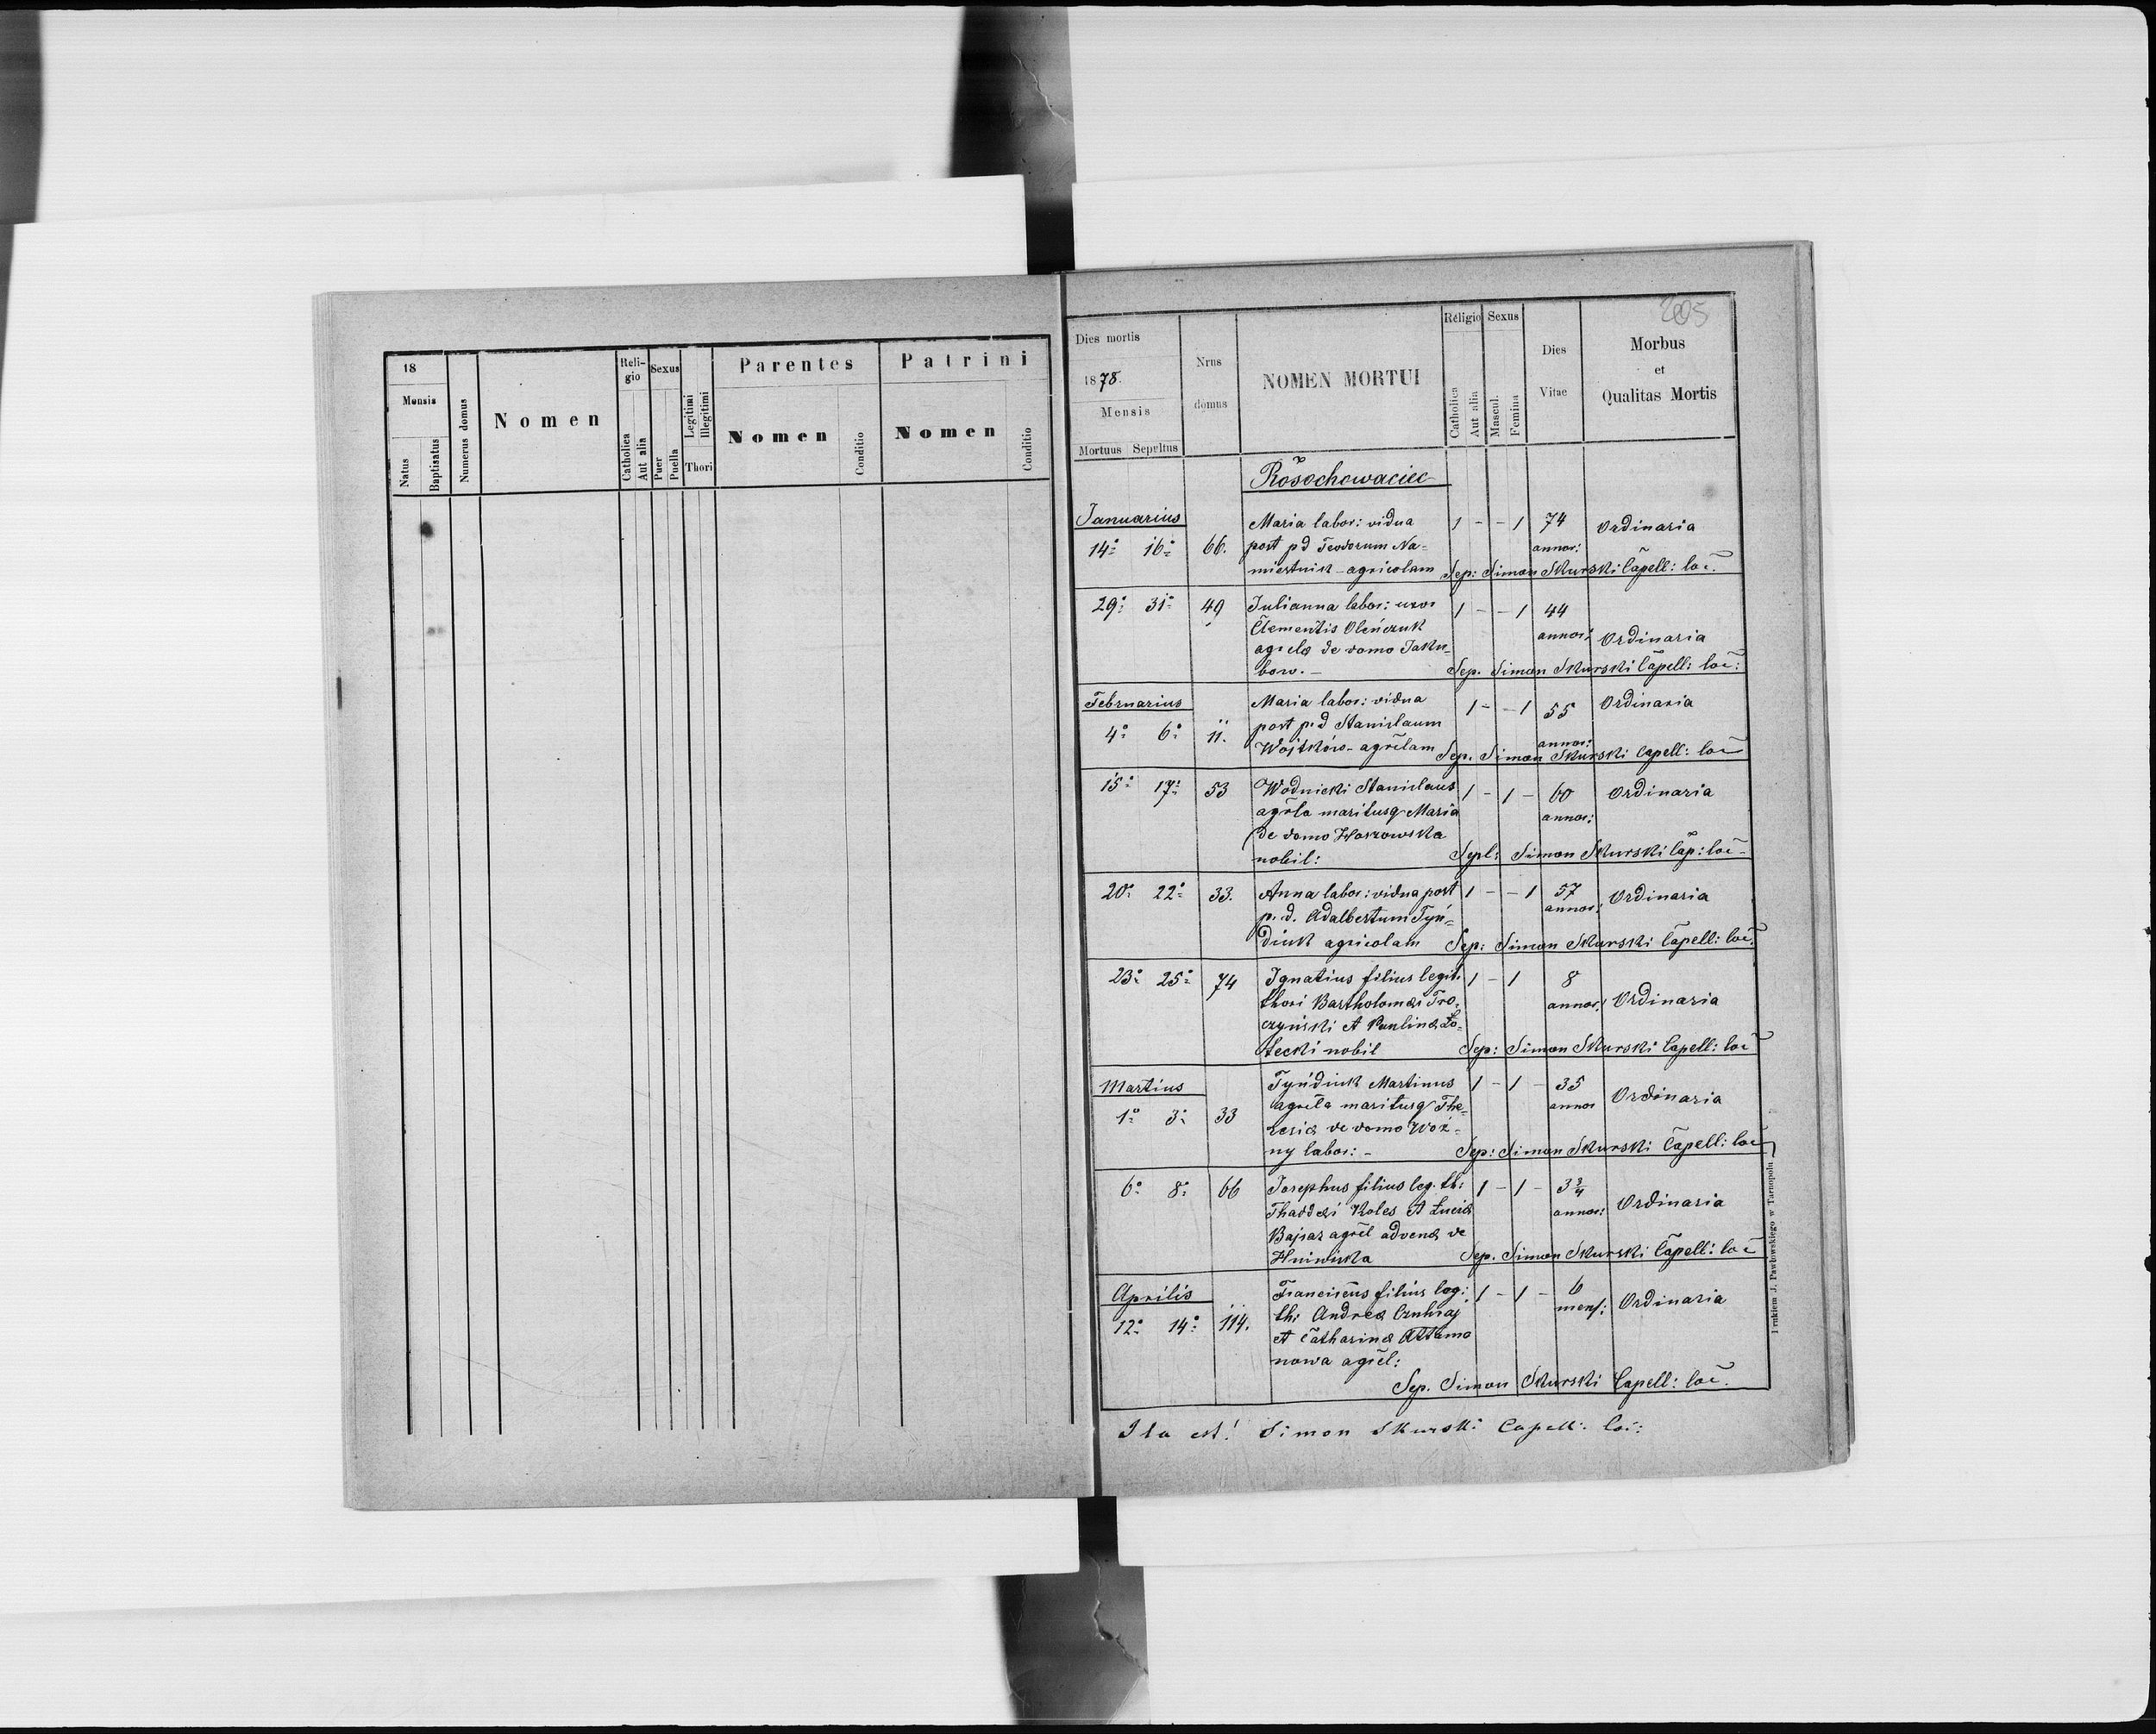 18
Mensis
Natus
Baptisatus
Numerus domus
Nomen
Reli-
gio
Catholica
Aut alia
Sexus
Puer
Puella
Legitimi
Illegitimi
Thori
Parentes
Nomen
Conditio
Patrini
Nomen
Conditio
205
Dies mortis
1878.
Mensis
Mortuus Sepultus
Nrus
domus
NOMEN MORTUI
Religio
Catholica
Aut alia
Sexus
Mascul.
Femina
Dies
Vitae
Morbus
et
Qualitas Mortis
Rosochowaciec
Januarius Maria labor: vidua 1 - - 1 74 Ordinaria
14° 16° 66. post pd Teodorum Na- annor:
miestnik - agricolam Sep: Simon Skurski Capell: loc.
29° 31° 49 Julianna labor: uxor 1 - - 1 44
Clementis Oleńczuk annor: Ordinaria
agrclæ de domo Jaku-
bow. - Sep. Simon Skurski Capell: loc:
Februarius Maria labor: vidua 1 - - 1 55 Ordinaria
4° 6° 11. post p.d Stanislaum annor:
Wojtków - agrclam Sep. Simon Skurski Capell: loc
15° 17° 53 Wodnicki Stanislaus 1 - 1 - 60 Ordinaria
agrla maritusq Maria annor:
de domo Hoszowska
nobil: Sepl: Simon Skurski Cap: loc -
20° 22° 33. Anna labor: vidua post 1 - - 1 57 Ordinaria
p. d. Adalbertum Tyń- annor:
diuk agricolam Sep: Simon Skurski Capell: loc.
23° 25° 74 Ignatius filius legit. 1 - 1 8
thori Bartholomæi Tro- annor: Ordinaria
czyński et Paulinæ Ło-
tecki nobil Sep: Simon Skurski Capell: loc
Martius Tyńdiuk Martinus 1 - 1 - 35 Ordinaria
1° 3° 33 agrcla maritusq The- annor
resiæ de domo Woź-
ny labor: - Sep: Simon Skurski Capell: loc
6° 8° 66 Josephus filius leg. th: 1 - 1 - 3 3/4 Ordinaria
Thaddæi Koles et Luciæ annor:
Bajsar agrcl advenæ de
Hniwiuka Sep. Simon Skurski Capell: loc
Aprilis Franciscus filius leg: 1 - 1 - 6 Ordinaria
12° 14° 114. th: Andreæ Czuhraj mens:
et Catharinæ Attama
nowa agrcl:
Sep. Simon Skurski Capell: loc.
Ita est! Simon Skurski Capell: loc:
Drukiem J. Pawłowskiego w Tarnopolu